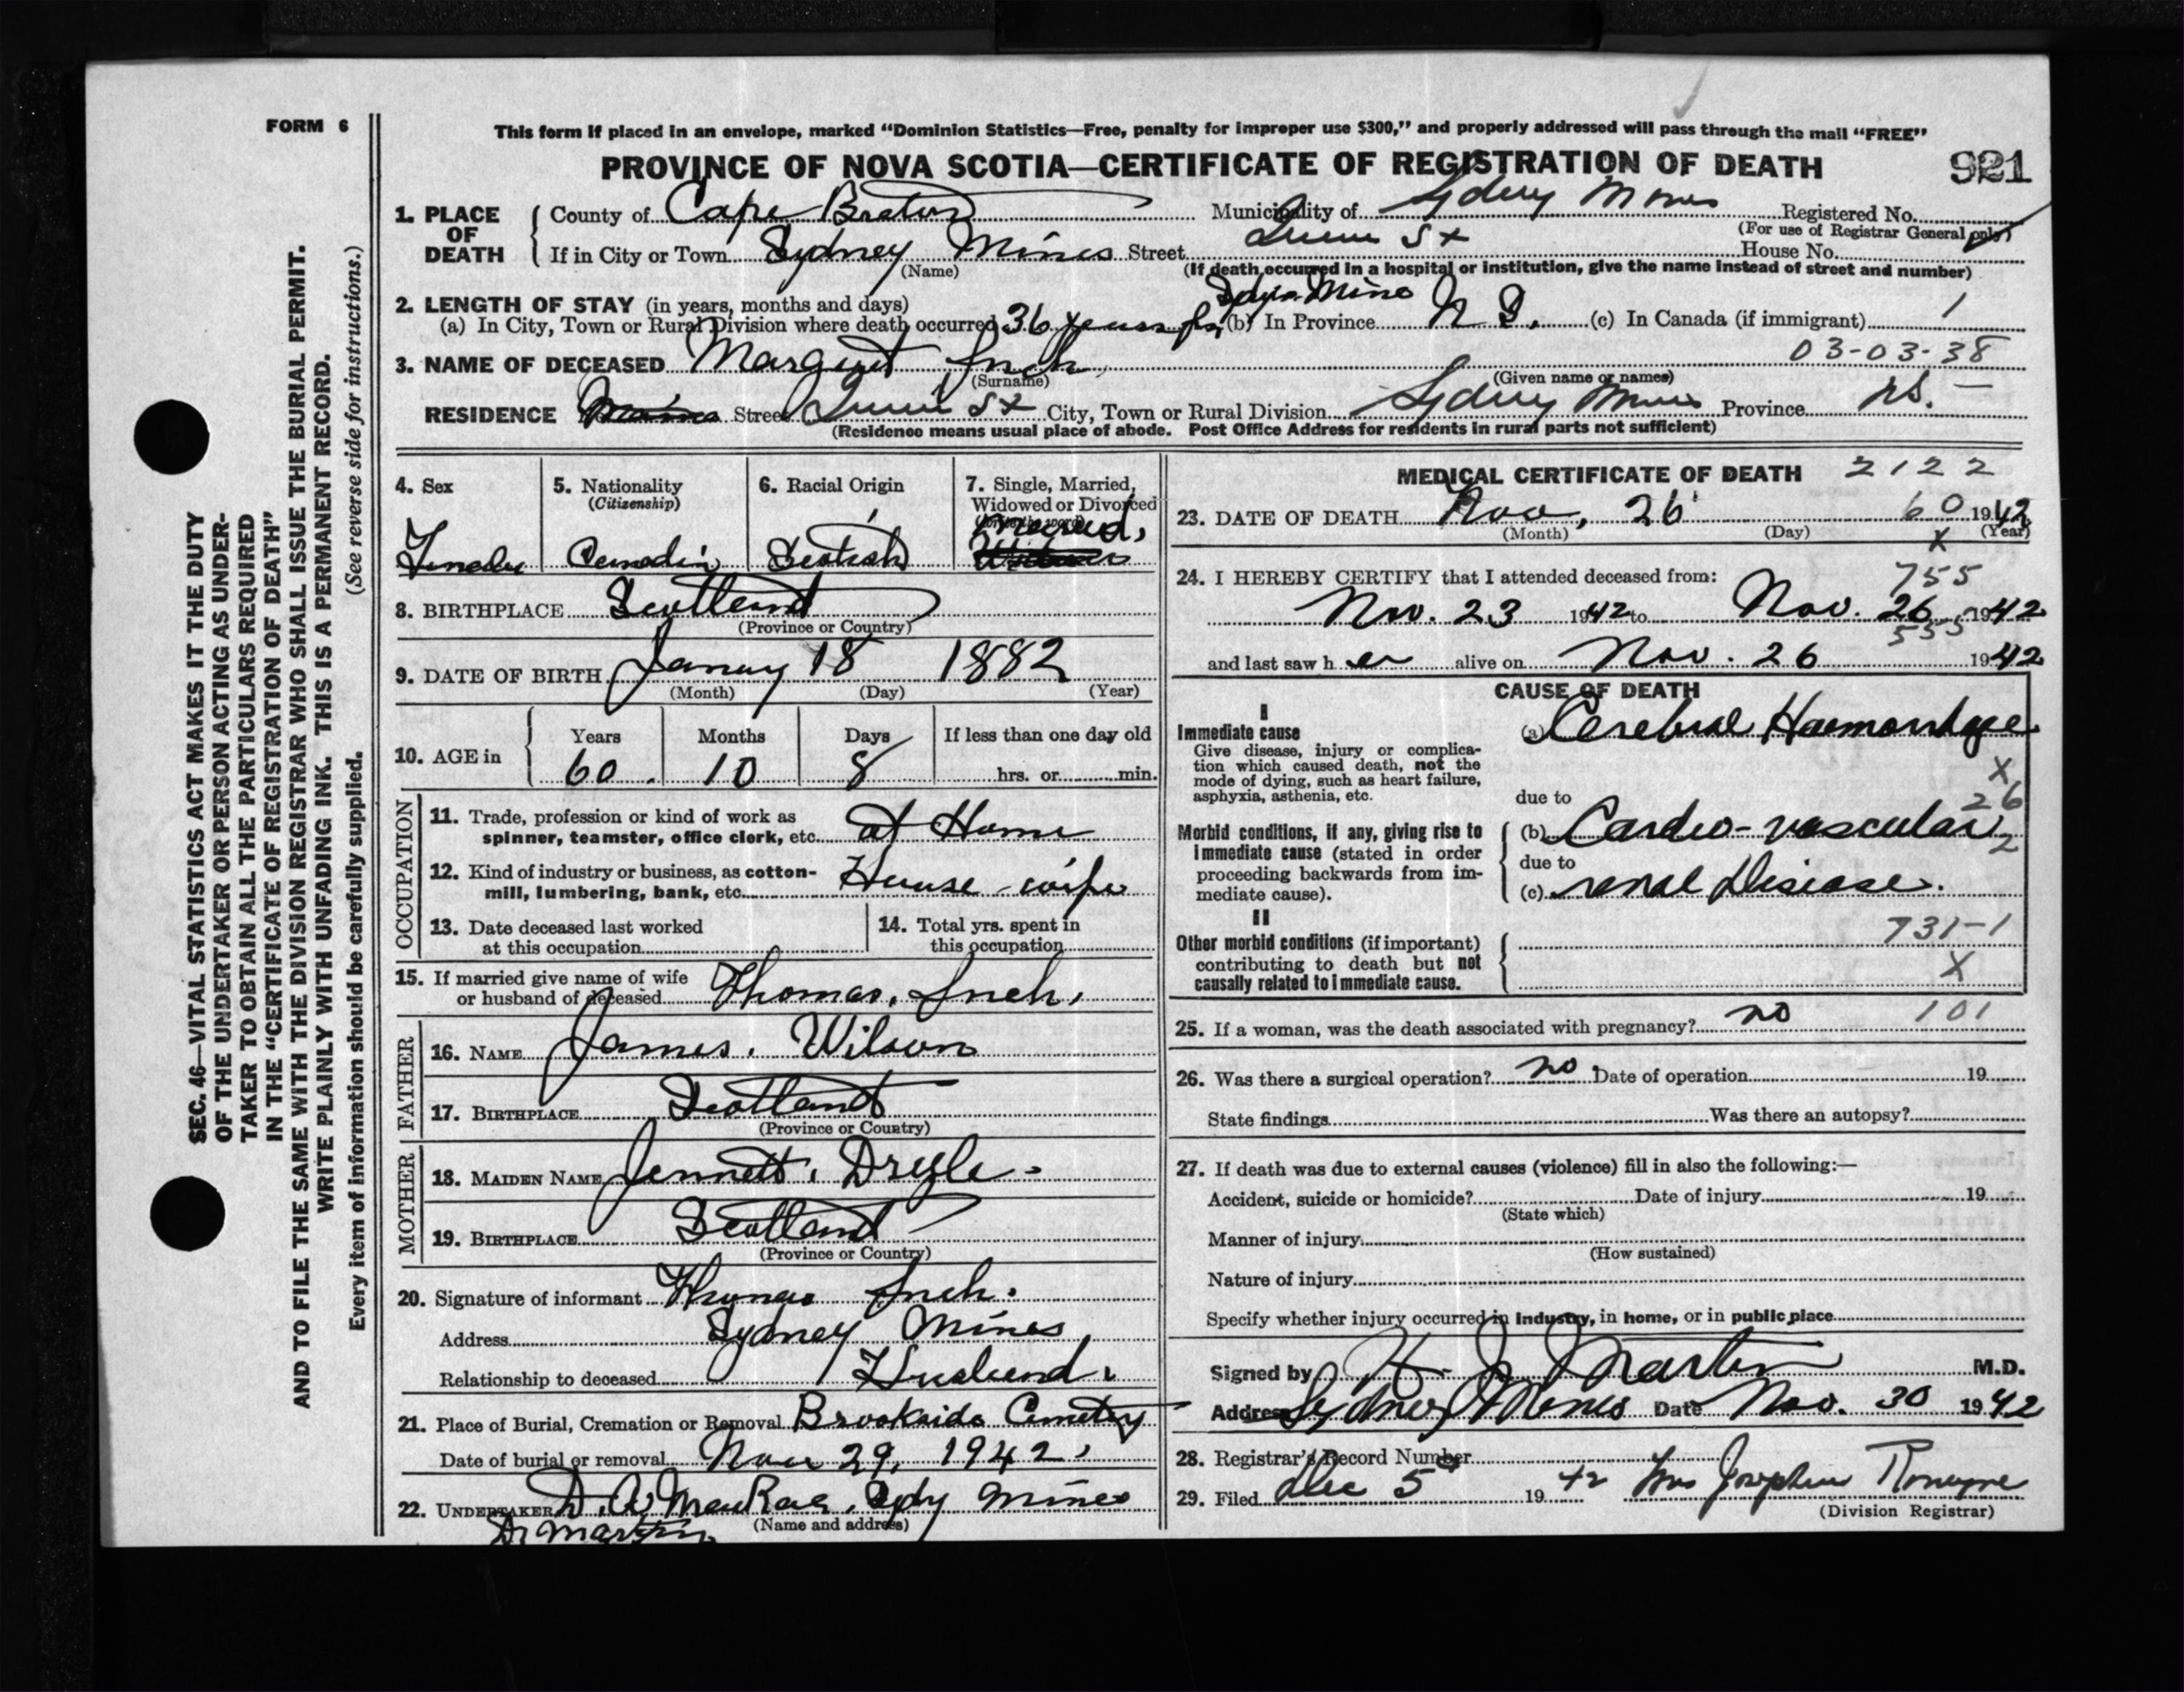 FORM 6
This form if placed in an envelope, marked "Dominion Statistics—Free, penalty for improper use $300," and properly addressed will pass through the mail "FREE"
PROVINCE OF NOVA SCOTIA—CERTIFICATE OF REGISTRATION OF DEATH
921
1. PLACE OF DEATH
County of Cape Breton Municipality of Sydney Mines Registered No.
(For use of Registrar General only)
If in City or Town Sydney Mines Street St House No.
(Name)
(If death occurred in a hospital or institution, give the name instead of street and number)
2. LENGTH OF STAY (in years, months and days)
(a) In City, Town or Rural Division where death occurred 36 years (b) In Province N S. (c) In Canada (if immigrant)
3. NAME OF DECEASED Margret Inch
(Surname) (Given name or names)
03-03-38
RESIDENCE Street St City, Town or Rural Division Sydney Mines Province NS.
(Residence means usual place of abode. Post Office Address for residents in rural parts not sufficient)
4. Sex
5. Nationality (Citizenship)
6. Racial Origin
7. Single, Married, Widowed or Divorced
(write the word)
Married,
8. BIRTHPLACE Scotland
(Province or Country)
9. DATE OF BIRTH January 18 1882
(Month) (Day) (Year)
10. AGE in
Years Months Days If less than one day old
60 10 8 hrs. or min.
OCCUPATION
11. Trade, profession or kind of work as spinner, teamster, office clerk, etc. at Home
12. Kind of industry or business, as cotton-mill, lumbering, bank, etc. House-wife
13. Date deceased last worked at this occupation
14. Total yrs. spent in this occupation
15. If married give name of wife or husband of deceased Thomas. Inch.
FATHER
16. NAME James. Wilson
17. BIRTHPLACE Scotland
(Province or Country)
MOTHER
18. MAIDEN NAME Jennett.
19. BIRTHPLACE Scotland
(Province or Country)
20. Signature of informant Thomas Inch.
Address Sydney Mines
Relationship to deceased Husband.
21. Place of Burial, Cremation or Removal Brookside Cemetry
Date of burial or removal Nov 29, 1942.
22. UNDERTAKER D. A. MacRae, Sydy Mines
(Name and address)
Dr Martin
MEDICAL CERTIFICATE OF DEATH
2122
23. DATE OF DEATH Nov, 26 60 1942
(Month) (Day) (Year)
X
24. I HEREBY CERTIFY that I attended deceased from:
755
Nov. 23 1942 to Nov. 26 1942
555
and last saw h er alive on Nov. 26 1942
CAUSE OF DEATH
I
Immediate cause
Give disease, injury or complication which caused death, not the mode of dying, such as heart failure, asphyxia, asthenia, etc.
(a) Cerebral Haemorrhage
X
due to
26
Morbid conditions, if any, giving rise to immediate cause (stated in order proceeding backwards from immediate cause).
(b) Cardio-vascular
2
due to
(c) renal Disease.
II
Other morbid conditions (if important) contributing to death but not causally related to immediate cause.
731-1
X
25. If a woman, was the death associated with pregnancy? no 101
26. Was there a surgical operation? no Date of operation 19
State findings Was there an autopsy?
27. If death was due to external causes (violence) fill in also the following:—
Accident, suicide or homicide? Date of injury 19
(State which)
Manner of injury
(How sustained)
Nature of injury
Specify whether injury occurred in industry, in home, or in public place
Signed by H. J. Martin M.D.
Address Sydney Mines Date Nov. 30 1942
28. Registrar's Record Number
29. Filed Dec 5th 1942
(Division Registrar)
SEC. 46—VITAL STATISTICS ACT MAKES IT THE DUTY
OF THE UNDERTAKER OR PERSON ACTING AS UNDER-
TAKER TO OBTAIN ALL THE PARTICULARS REQUIRED
IN THE "CERTIFICATE OF REGISTRATION OF DEATH"
AND TO FILE THE SAME WITH THE DIVISION REGISTRAR WHO SHALL ISSUE THE BURIAL PERMIT.
WRITE PLAINLY WITH UNFADING INK. THIS IS A PERMANENT RECORD.
Every item of information should be carefully supplied. (See reverse side for instructions.)